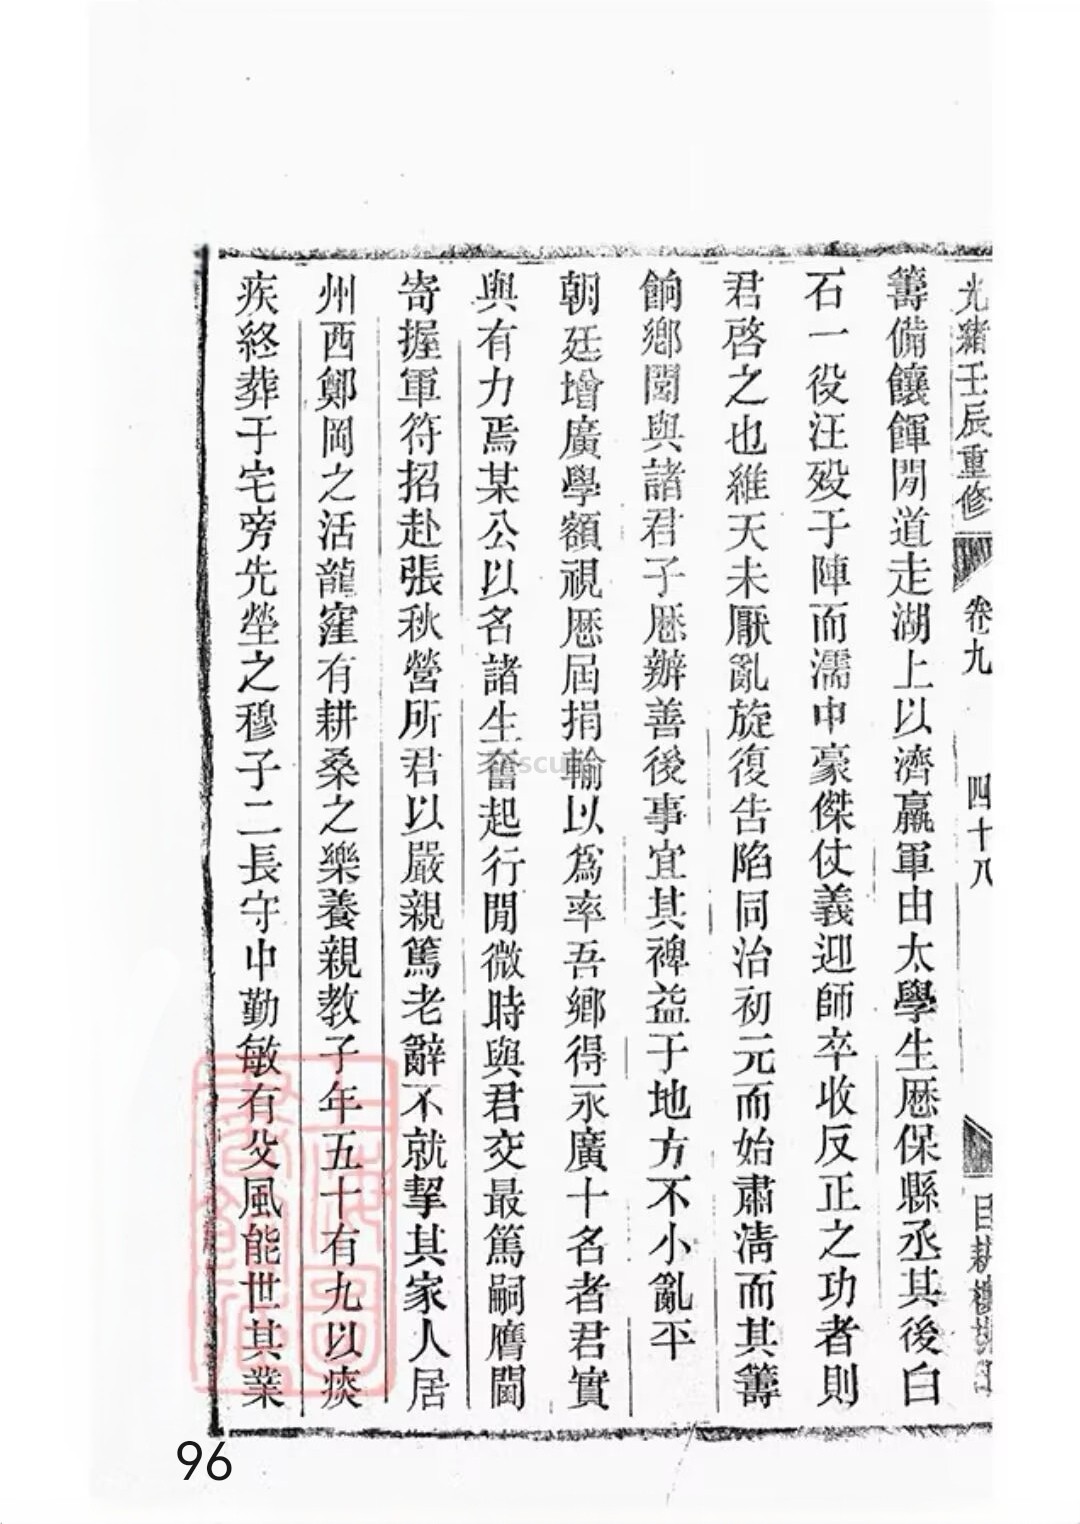 光緒壬辰重修
卷九
四十八
籌備饟餫閒道走湖上以濟羸軍由太學生歷保縣丞其後白
石一役汪殁于陣而濡中豪傑仗義迎師卒收反正之功者則
君啓之也維天未厭亂旋復告陷同治初元而始肅淸而其籌
餉鄉閭與諸君子歷辦善後事宜其裨益于地方不小亂平
朝廷增廣學額視歷屆捐輸以爲率吾鄉得永廣十名者君實
與有力焉某公以名諸生奮起行閒微時與君交最篤嗣膺閫
寄握軍符招赴張秋營所君以嚴親篤老辭不就挈其家人居
州西鄭岡之活龍窪有耕桑之樂養親教子年五十有九以痰
疾終葬于宅旁先塋之穆子二長守中勤敏有父風能世其業
96